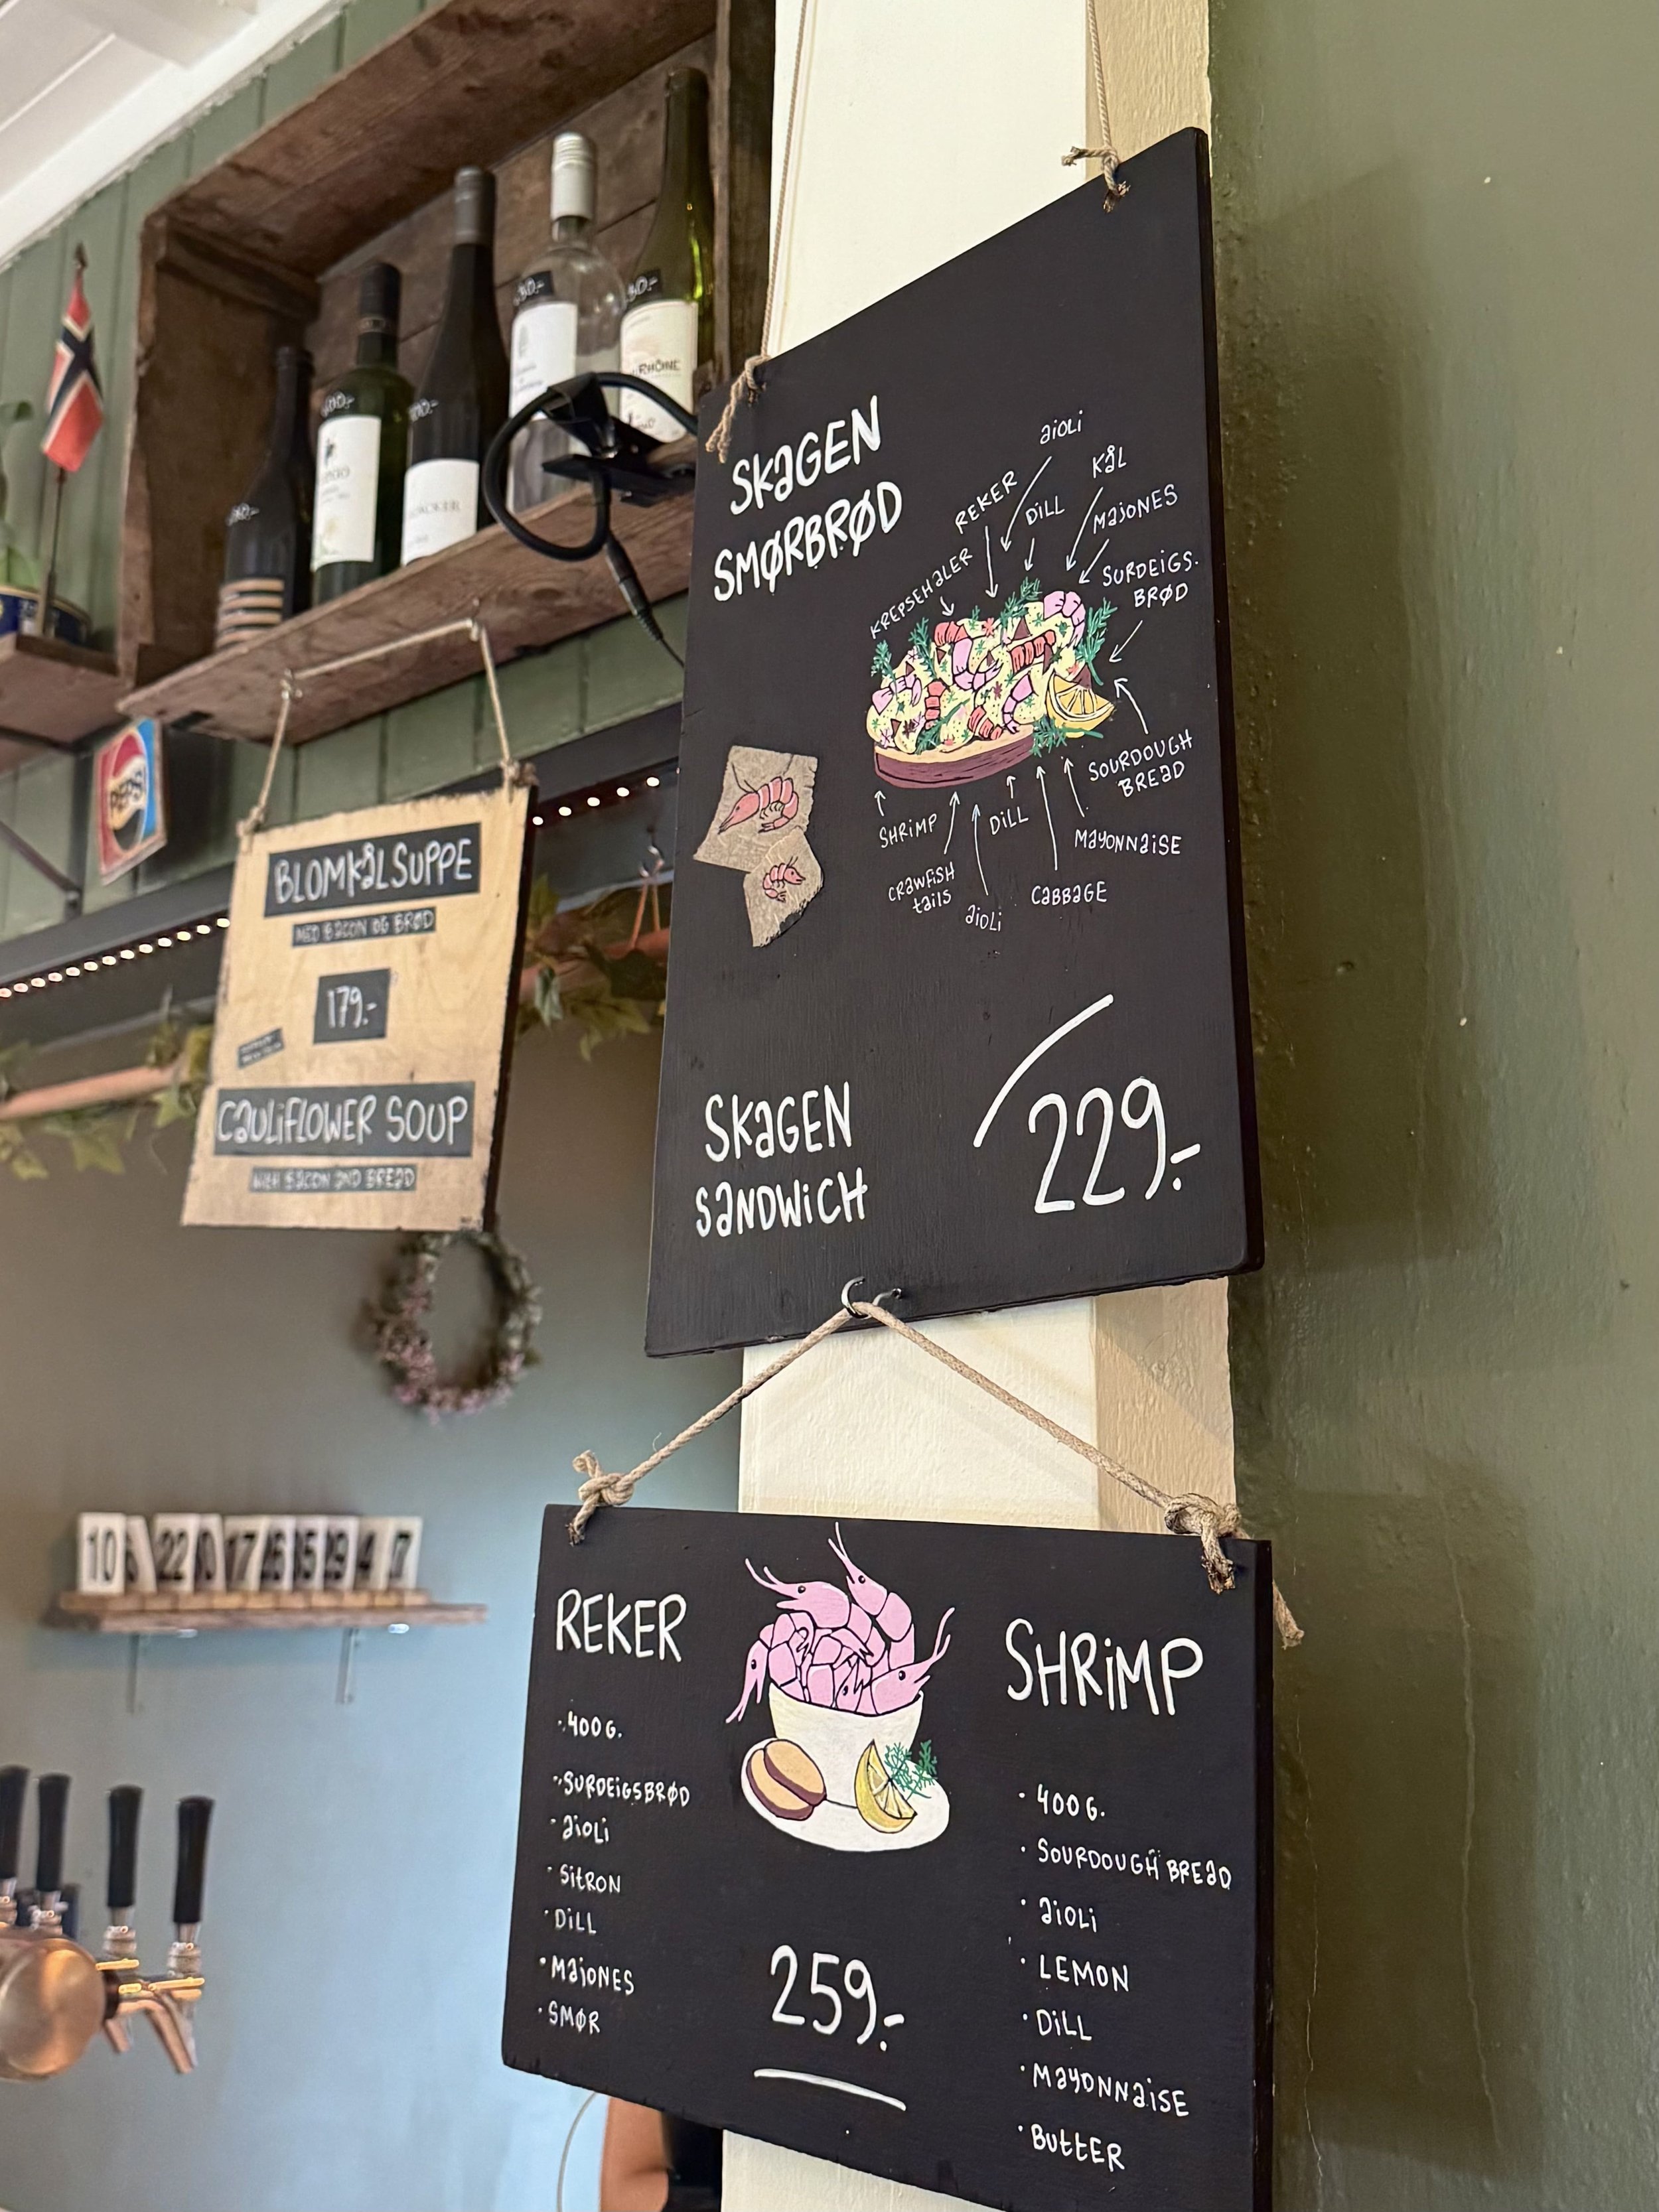 SKAGEN
SMØRBRØD
KREPSEHALER
REKER
AIOLI
DILL
KÅL
MAJONES
SURDEIGS.
BRØD
SOURDOUGH
BREAD
SHRIMP
CRAWFISH
TAILS
AIOLI
DILL
CABBAGE
MAYONNAISE
SKAGEN
SANDWICH
229.-
BLOMKÅLSUPPE
MED BACON OG BRØD
179.-
CAULIFLOWER SOUP
WITH BACON AND BREAD
PEPSI
RHÔNE
REKER
· 400 G.
· SURDEIGSBRØD
· AIOLI
· SITRON
· DILL
· MAJONES
· SMØR
259.-
SHRIMP
· 400 G.
· SOURDOUGH BREAD
· AIOLI
· LEMON
· DILL
· MAYONNAISE
· BUTTER
10
22
17
4